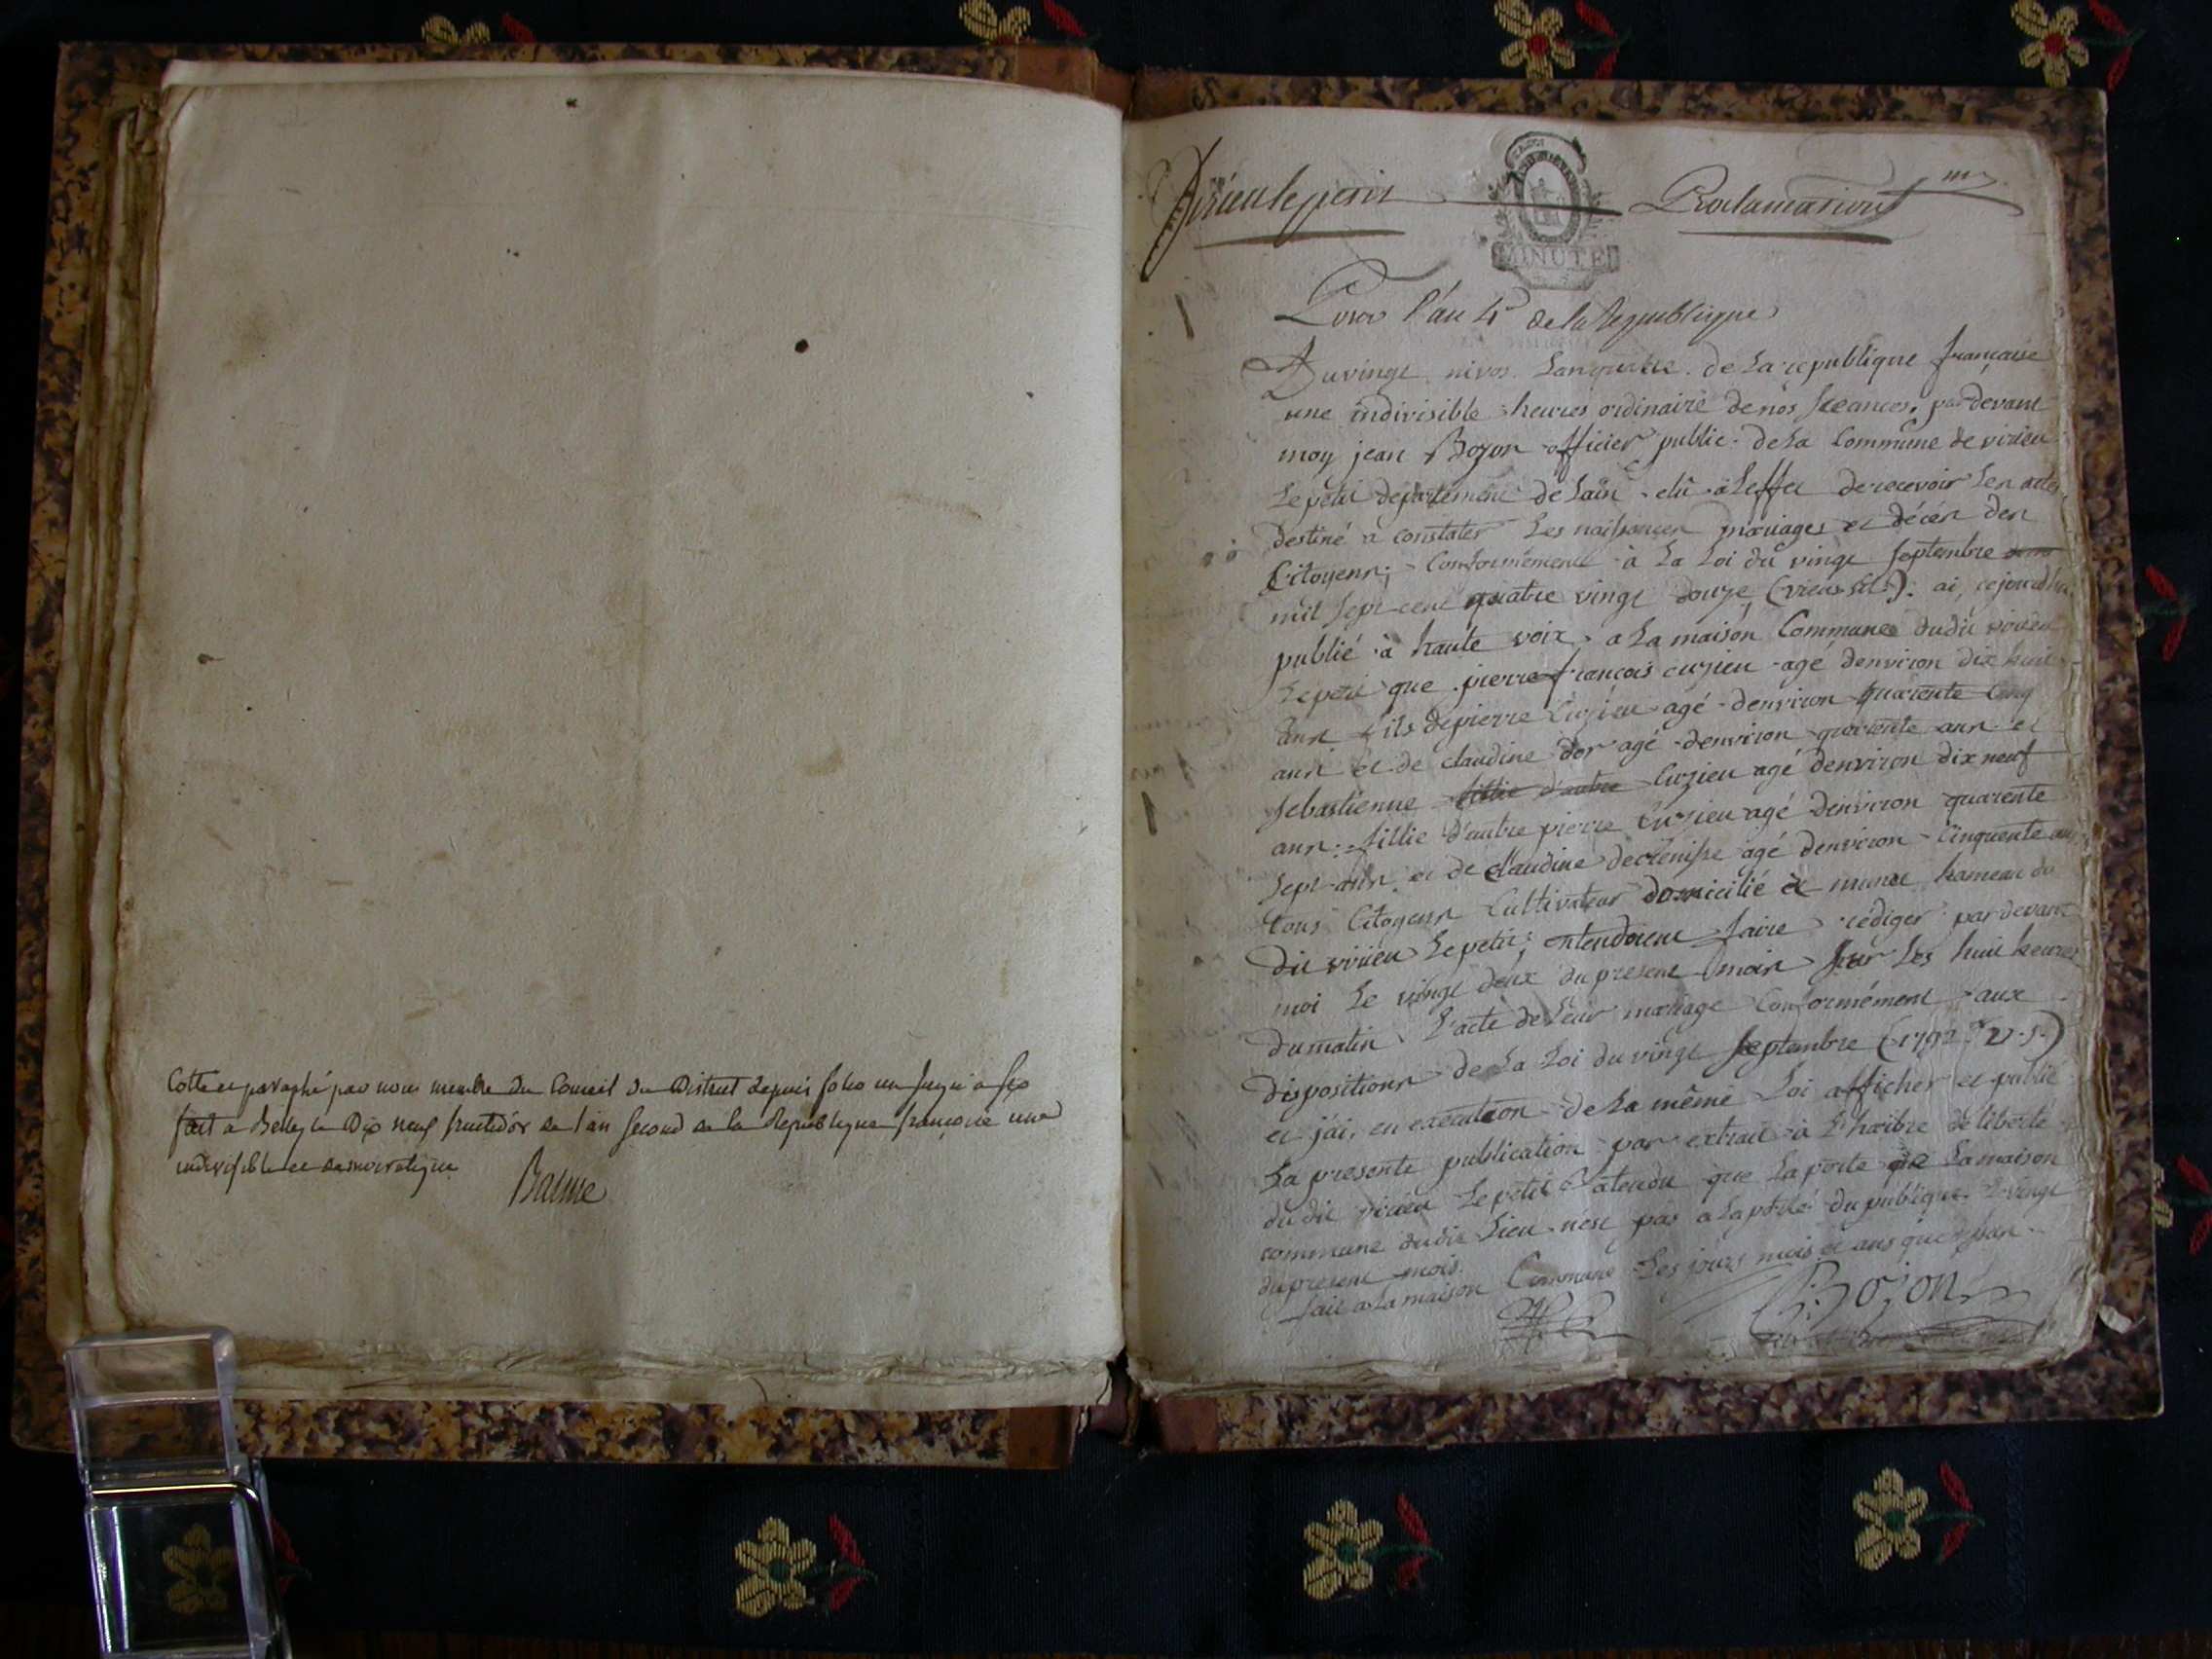 Cotté et paraphé par nous membre du Conseil du District depuis folio un jusqu'a six
fait a Belley le Dix neuf fructidor de l'an second de la Republique françoise une
indivisible et democratique
Balme
Virieu le petit Proclamations
MINUTE
Pour l'an 4e de la Republique
Du vingt nivos Lanquatre de La republique française
une indivisible heures ordinaire de nos sceances, pardevant
moy jean Bozon officier public de La Commune de virieu
Lepetit departement de Lain elû a Leffet de recevoir Les actes
destiné a constater Les naissances mariages et décés des
Citoyens; Conformément à La Loi du vingt septembre
mil sept cent quatre vingt douze (vieus stil): ai, cejourdhui
publié à haute voix a La maison Commune dudit virieu
Lepetit que pierre françois cuzieu agé denviron dix huit
ans fils depierre Cuzieu agé denviron quarente cinq
ans et de claudine dor agé denviron quarente ans et
sebastienne fillie d'autre Cuzieu agé denviron dix neuf
ans: fillie d'autre pierre Cuzieu agé denviron quarente
sept ans et de claudine decrenisse agé denviron Cinquente ans
tous Citoyens Cultivateur domicilié à munet hameau du
dit virieu Lepetit; entendoient faire rédiger pardevant
moi Le vingt deux du present mois sur Les huit heures
dumatin L'acte de Leur mariage Conformément aux
dispositions de La Loi du vingt septembre (1792 v.s.)
et j'ai, en execution de La même Loi afficher et publié
La presente publication par extrait à L'harbre de liberté
du dit virieu Lepetit atendu que La porte de Lamaison
commune dudit Lieu nest pas a La porté du publique. vingt
dupresent mois.
fait a La maison Commune Les jours mois et ans que dessus
Bozon